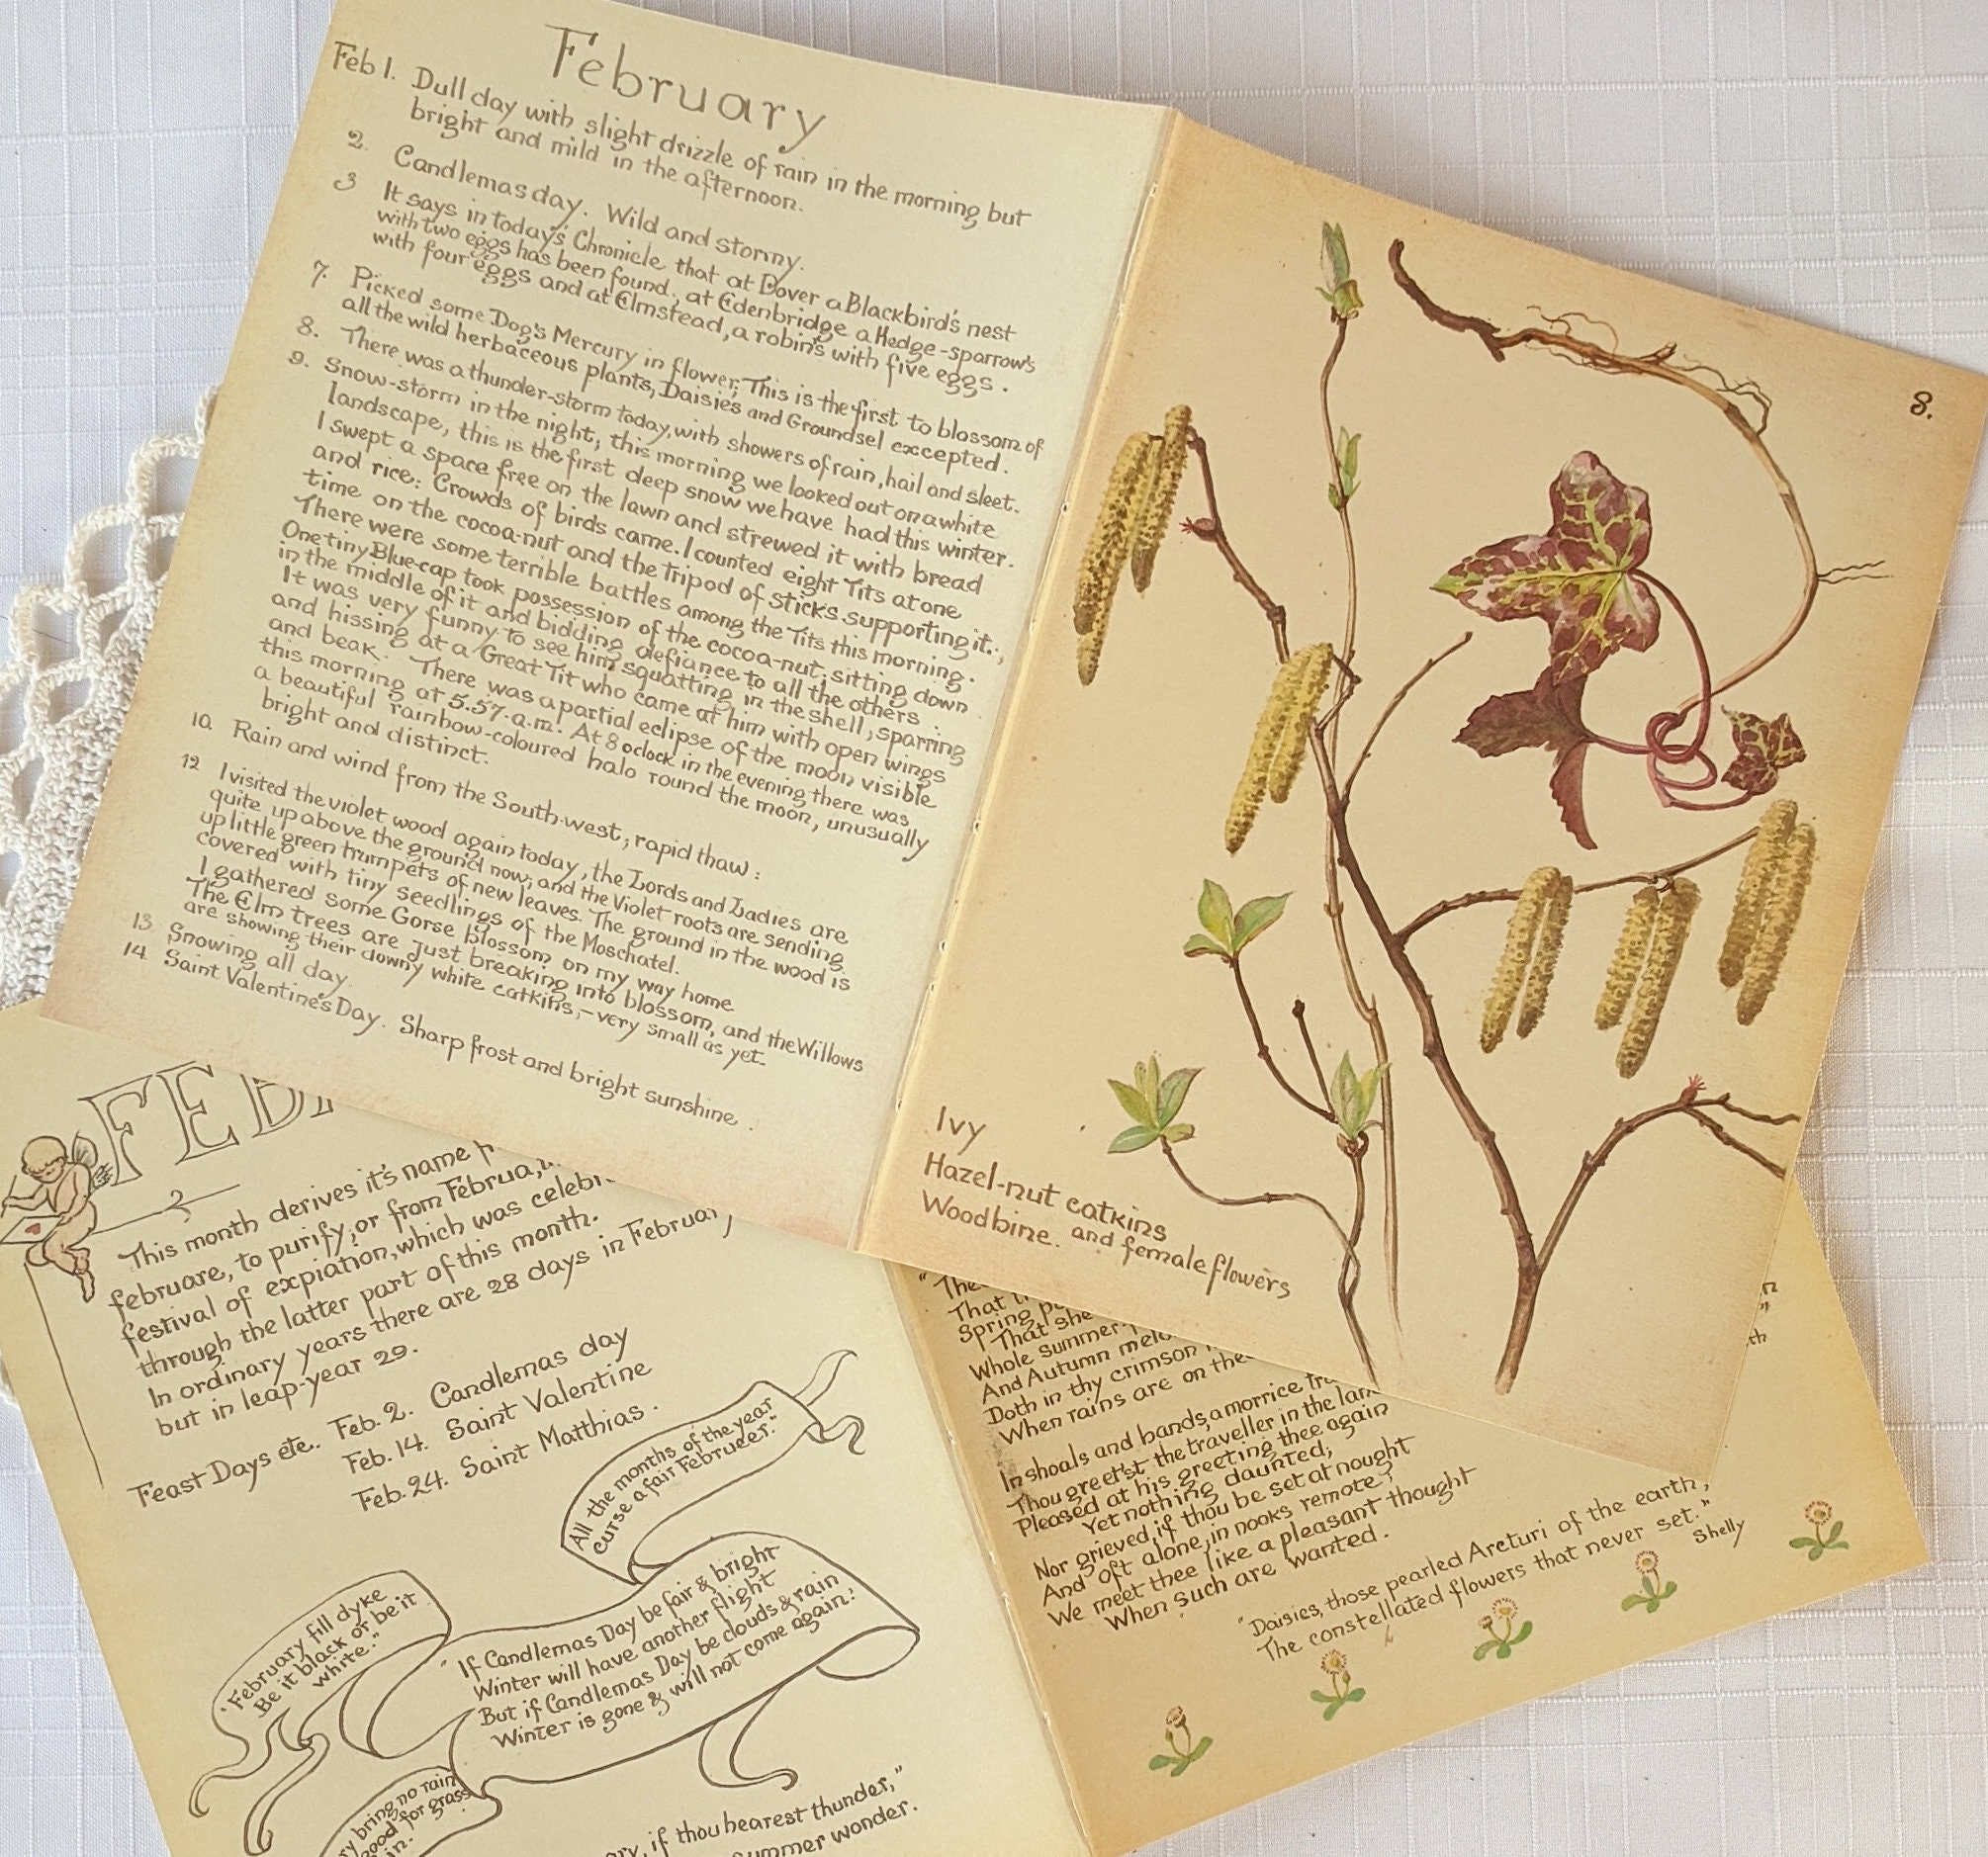 February
Feb 1. Dull day with slight drizzle of rain in the morning but
bright and mild in the afternoon.
2. Candlemas day. Wild and stormy.
3 It says in today's Chronicle that at Dover a Blackbird's nest
with two eggs has been found; at Edenbridge a Hedge-sparrow's
with four eggs and at Elmstead, a robin's with five eggs.
7. Picked some Dog's Mercury in flower; This is the first to blossom of
all the wild herbaceous plants, Daisies and Groundsel excepted.
8. There was a thunder-storm today, with showers of rain, hail and sleet.
9. Snow-storm in the night; this morning we looked out on a white
landscape, this is the first deep snow we have had this winter.
I swept a space free on the lawn and strewed it with bread
and rice: Crowds of birds came. I counted eight Tits at one
time on the cocoa-nut and the tripod of sticks supporting it.
There were some terrible battles among the Tits this morning.
One tiny Blue-cap took possession of the cocoa-nut; sitting down
in the middle of it and bidding defiance to all the others.
It was very funny to see him squatting in the shell, sparring
and hissing at a Great Tit who came at him with open wings
and beak. There was a partial eclipse of the moon visible
this morning at 5.57. a.m. At 8 oclock in the evening there was
a beautiful rainbow-coloured halo round the moon, unusually
bright and distinct.
10. Rain and wind from the South-west; rapid thaw:
12 I visited the violet wood again today, the Lords and Ladies are
quite up above the ground now; and the Violet roots are sending
up little green trumpets of new leaves. The ground in the wood is
covered with tiny seedlings of the Moschatel.
I gathered some Gorse Blossom on my way home
The Elm trees are just breaking into blossom, and the Willows
are showing their downy white catkins, - very small as yet.
13. Snowing all day.
14. Saint Valentine's Day. Sharp frost and bright sunshine.
8.
Ivy
Hazel-nut catkins
and female flowers
Woodbine.
FEB
This month derives it's name
februare, to purify, or from Februa,
festival of expiation, which was
through the latter part of this month.
In ordinary years there are 28 days in February
but in leap-year 29.
Feast Days etc. Feb. 2. Candlemas day
Feb. 14. Saint Valentine
Feb. 24. Saint Matthias.
All the months of the year
curse a fair Februeer."
"February fill dyke
Be it black or be it
white."
"If Candlemas Day be fair & bright
Winter will have another flight
But if Candlemas Day be clouds & rain
Winter is gone & will not come again."
bring no rain
good for grass
if thou hearest thunder,"
summer wonder.
That
Spring
That she
Whole Summer
And Autumn
Doth in thy crimson
When rains are on
In shoals and bands, a morrice
Thou greet'st the traveller in the
Pleased at his greeting thee again
Yet nothing daunted,
Nor grieved, if thou be set at nought
And oft alone, in nooks remote
We meet thee like a pleasant thought
When such are wanted.
"Daisies, those pearled Arcturi of the earth,
The constellated flowers that never set."
Shelly